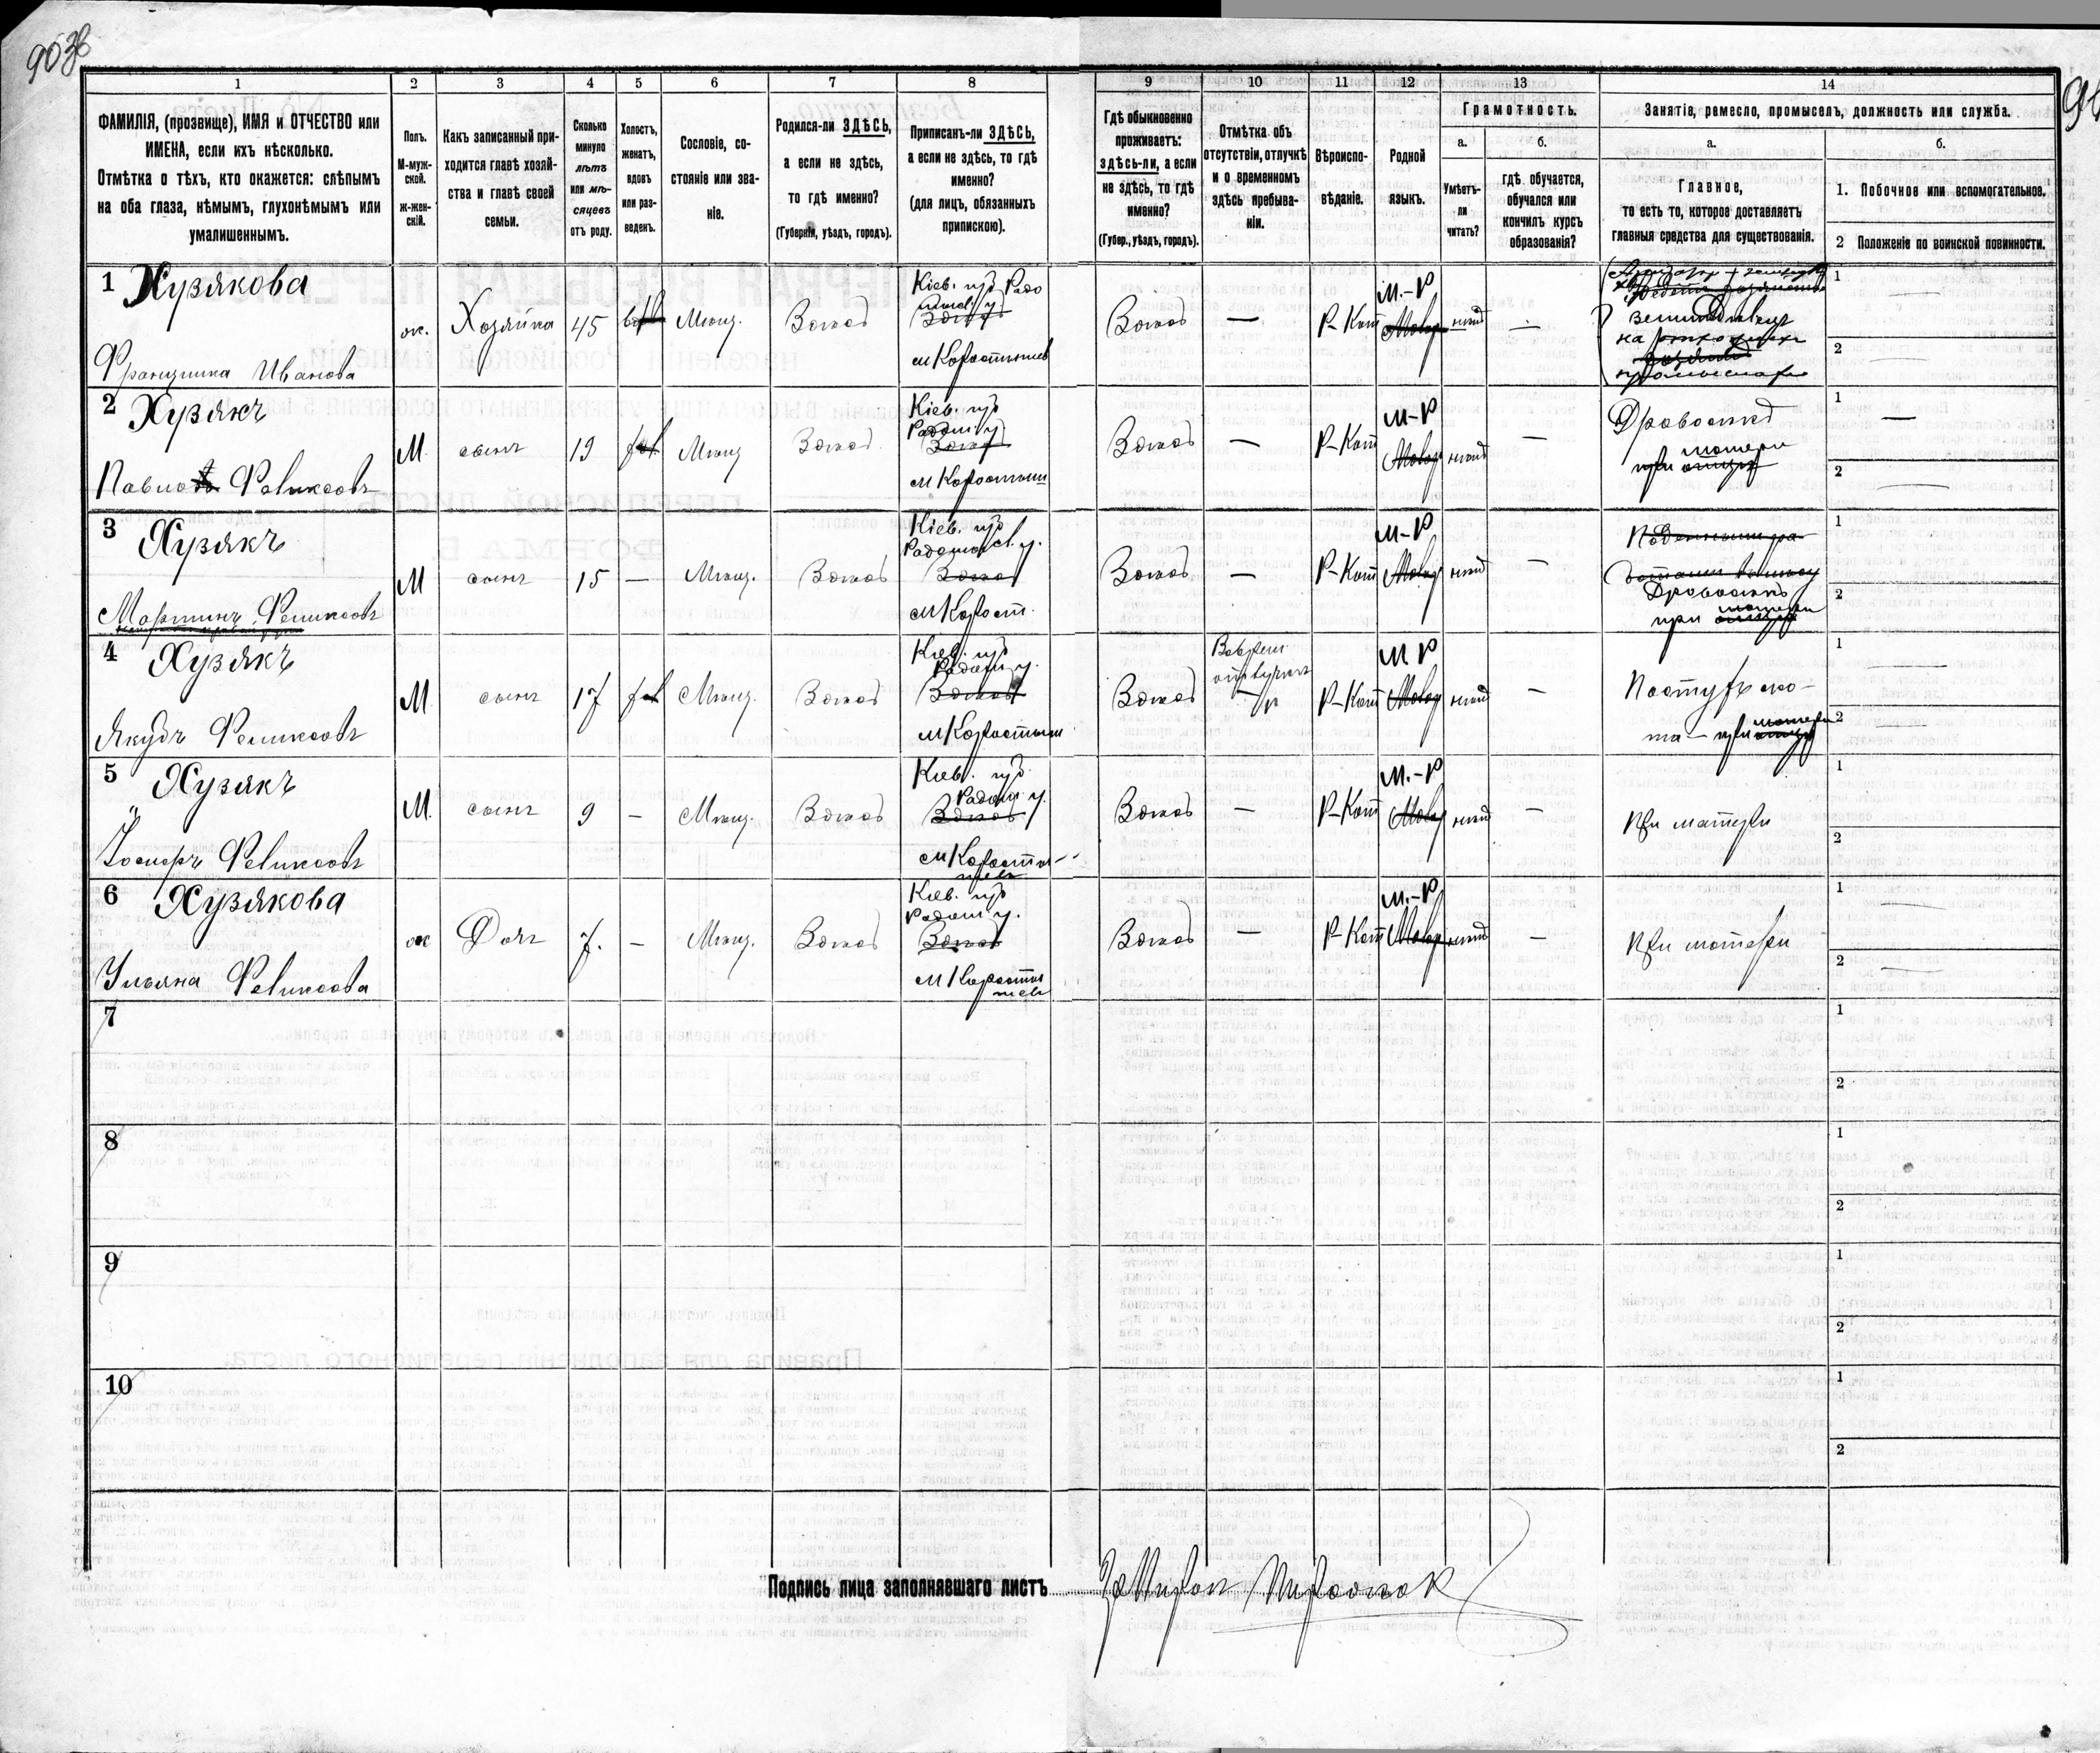 903б
1
2
3
4
5
6
7
8
9
10
11
12
13
14
ФАМИЛІЯ, (прозвище), ИМЯ и ОТЧЕСТВО или
ИМЕНА, если ихъ нѣсколько.
Отмѣтка о тѣхъ, кто окажется: слѣпымъ
на оба глаза, нѣмымъ, глухонѣмымъ или
умалишеннымъ.
Полъ.
М-муж-
ской.
Ж-жен-
скій.
Какъ записанный при-
ходится главѣ хозяй-
ства и главѣ своей
семьи.
Сколько
минуло
лѣтъ
или мѣ-
сяцевъ
отъ роду.
Холостъ,
женатъ,
вдовъ
или раз-
веденъ.
Сословіе, со-
стояніе или зва-
ніе.
Родился-ли ЗДѢСЬ,
а если не здѣсь,
то гдѣ именно?
(Губернія, уѣздъ, городъ).
Приписанъ-ли ЗДѢСЬ,
а если не здѣсь, то гдѣ
именно?
(для лицъ, обязанныхъ
припискою).
Гдѣ обыкновенно
проживаетъ:
здѣсь-ли, а если
не здѣсь, то гдѣ
именно?
(Губер., уѣздъ, городъ).
Отмѣтка объ
отсутствіи, отлучкѣ
и о временномъ
здѣсь пребыва-
ніи.
Вѣроиспо-
вѣданіе.
Родной
языкъ.
Грамотность.
а.
Умѣетъ-
ли
читать?
б.
гдѣ обучается,
обучался или
кончилъ курсъ
образованія?
Занятіе, ремесло, промыселъ, должность или служба.
а.
Главное,
то есть то, которое доставляетъ
главныя средства для существованія.
б.
1. Побочное или вспомогательное.
2 Положеніе по воинской повинности.
1 Хузякова
Францишка Иванова
ж.
Хозяйка
45
Мѣщ.
Здѣсь
Кіев. губ. Радо
Здѣсь
м Коростышев
Здѣсь
—
Р-Кат
М.-Р
Малор
—
на
1
2
2 Хузякъ
Феликсовъ
М.
сынъ
19
Мѣщ
Здѣсь
Кіев. губ
Радом. у
Здѣсь
м Коростыш
Здѣсь
—
Р-Кат
М-Р
Малор
—
Дровосѣкъ
при матери
1
2
3 Хузякъ
Мартинъ Феликсовъ
М
сынъ
15
—
Мѣщ.
Здѣсь
Кіев. губ
Радомысл. у.
Здѣсь
м Корост.
Здѣсь
—
Р-Кат
М-Р
Малор
—
Дровосѣкъ
при матери
1
2
4 Хузякъ
Якубъ Феликсовъ
М.
сынъ
17
Мѣщ.
Здѣсь
Кіев. губ
Радом у.
Здѣсь
м Коростыш
Здѣсь
Р-Кат
М Р
Малор
—
Пастухъ ско-
та — при матери
1
2
5 Хузякъ
Іосифъ Феликсовъ
М.
сынъ
9
—
Мѣщ.
Здѣсь
Кіев. губ
Радом у.
Здѣсь
м Коросты-
шев
Здѣсь
—
Р-Кат
М.-Р
Малор
—
При матери
1
2
6 Хузякова
Ульяна Феликсова
ж
Дочь
7.
—
Мѣщ.
Здѣсь
Кіев. губ
Радом у.
Здѣсь
м Коросты
шев
Здѣсь
—
Р-Кат
М.-Р
Малор
—
При матери
1
2
7
1
2
8
1
2
9
1
2
10
1
2
Подпись лица заполнявшаго листъ